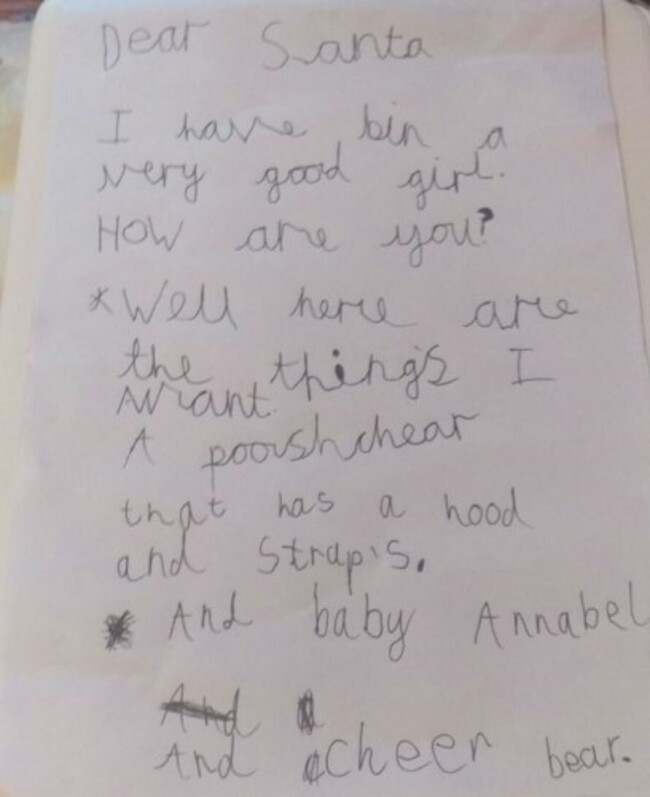 Dear Santa
I have bin a
very good girl.
HOW are you?
*Well here are
the things I
want.
A pooshchear
that has a hood
and strap's.
And baby Annabel
And
And cheer bear.